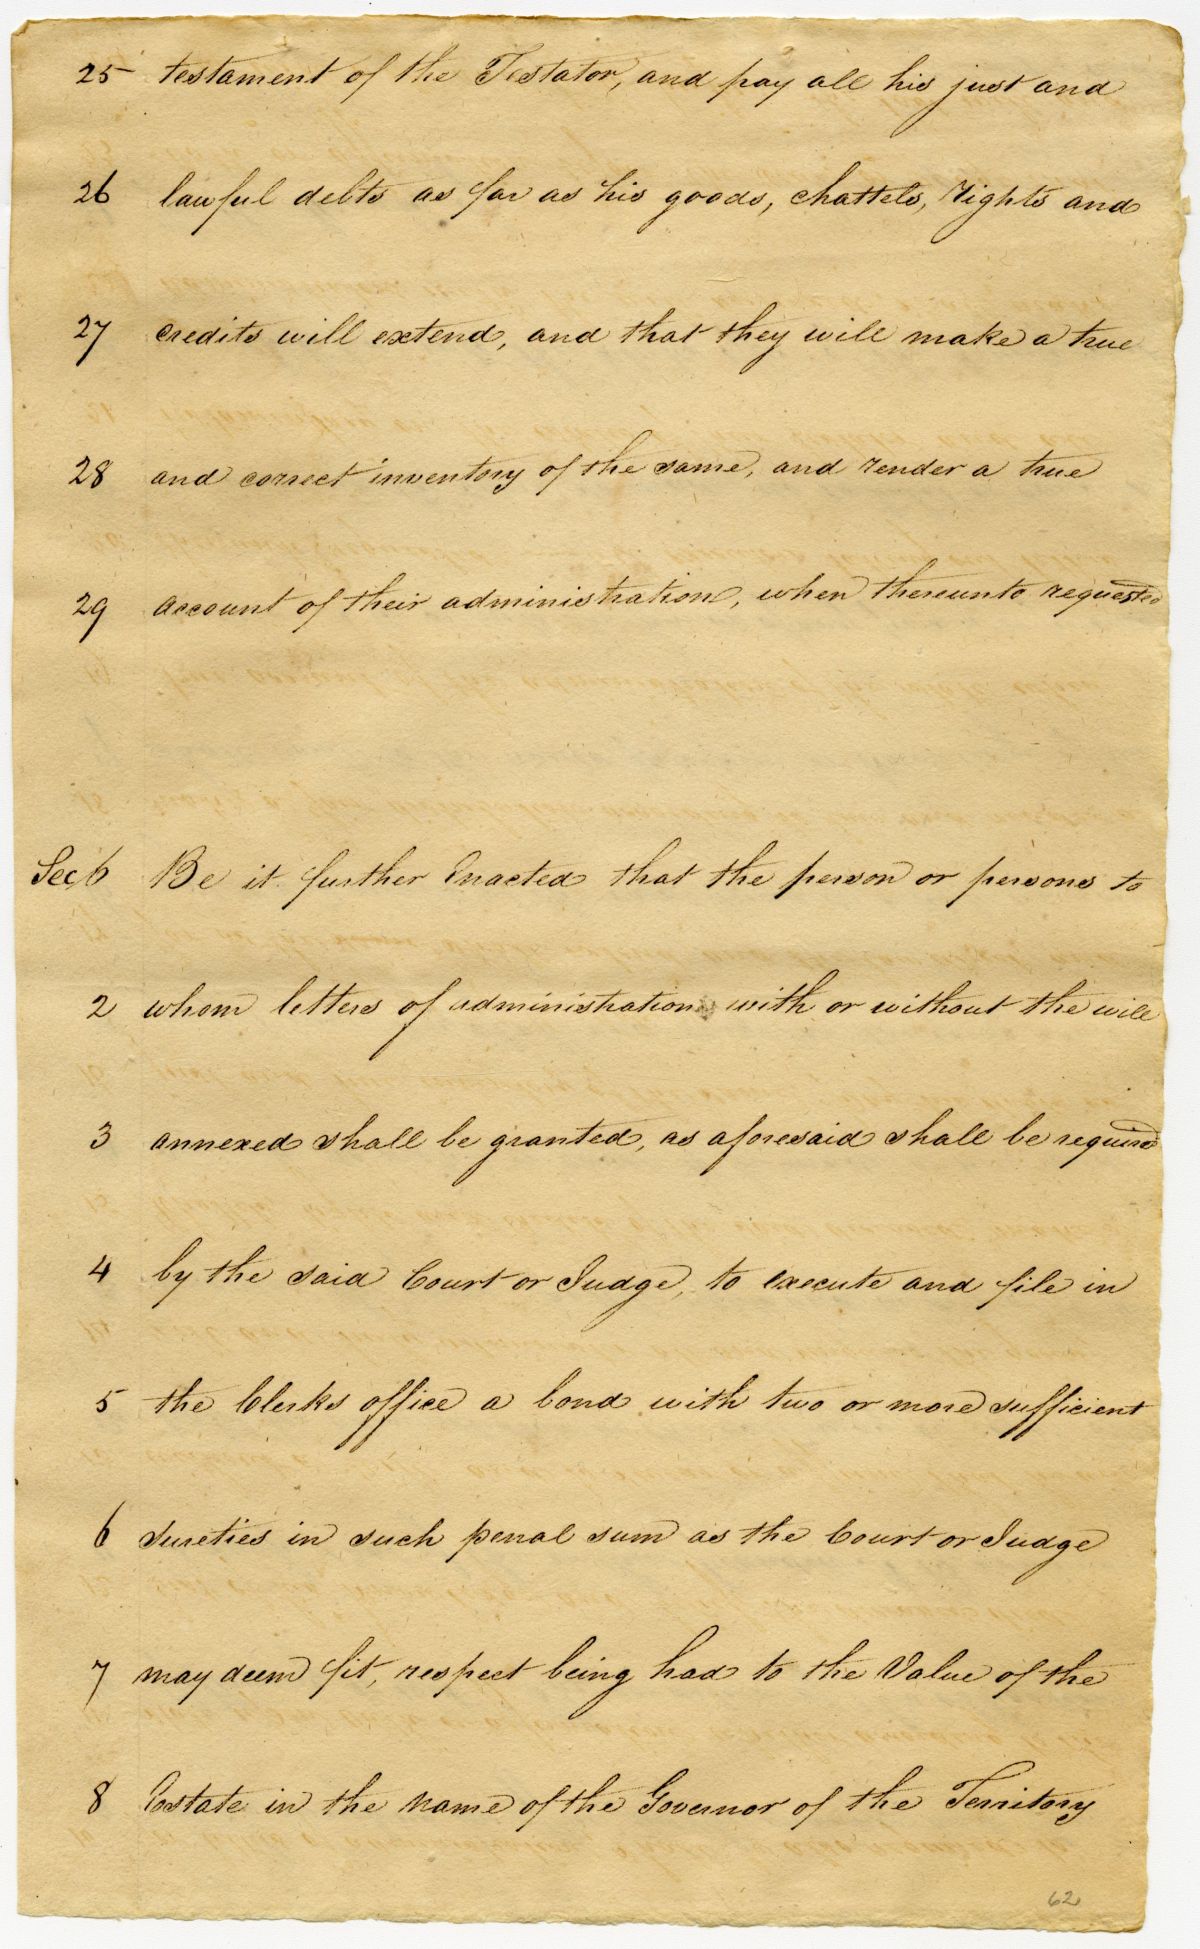 25 testament of the Testator, and pay all his just and
26 lawful debts as far as his goods, chattels, rights and
27 credits will extend, and that they will make a true
28 and correct inventory of the same, and render a true
29 account of their administration, when thereunto requested
Sec 6 Be it further Enacted that the person or persons to
2 whom letters of administration with or without the will
3 annexed shall be granted, as aforesaid shall be required
4 by the said Court or Judge, to execute and file in
5 the Clerks office a bond with two or more sufficient
6 Sureties in such penal sum as the Court or Judge
7 may deem fit, respect being had to the Value of the
8 Estate in the name of the Governor of the Territory
62